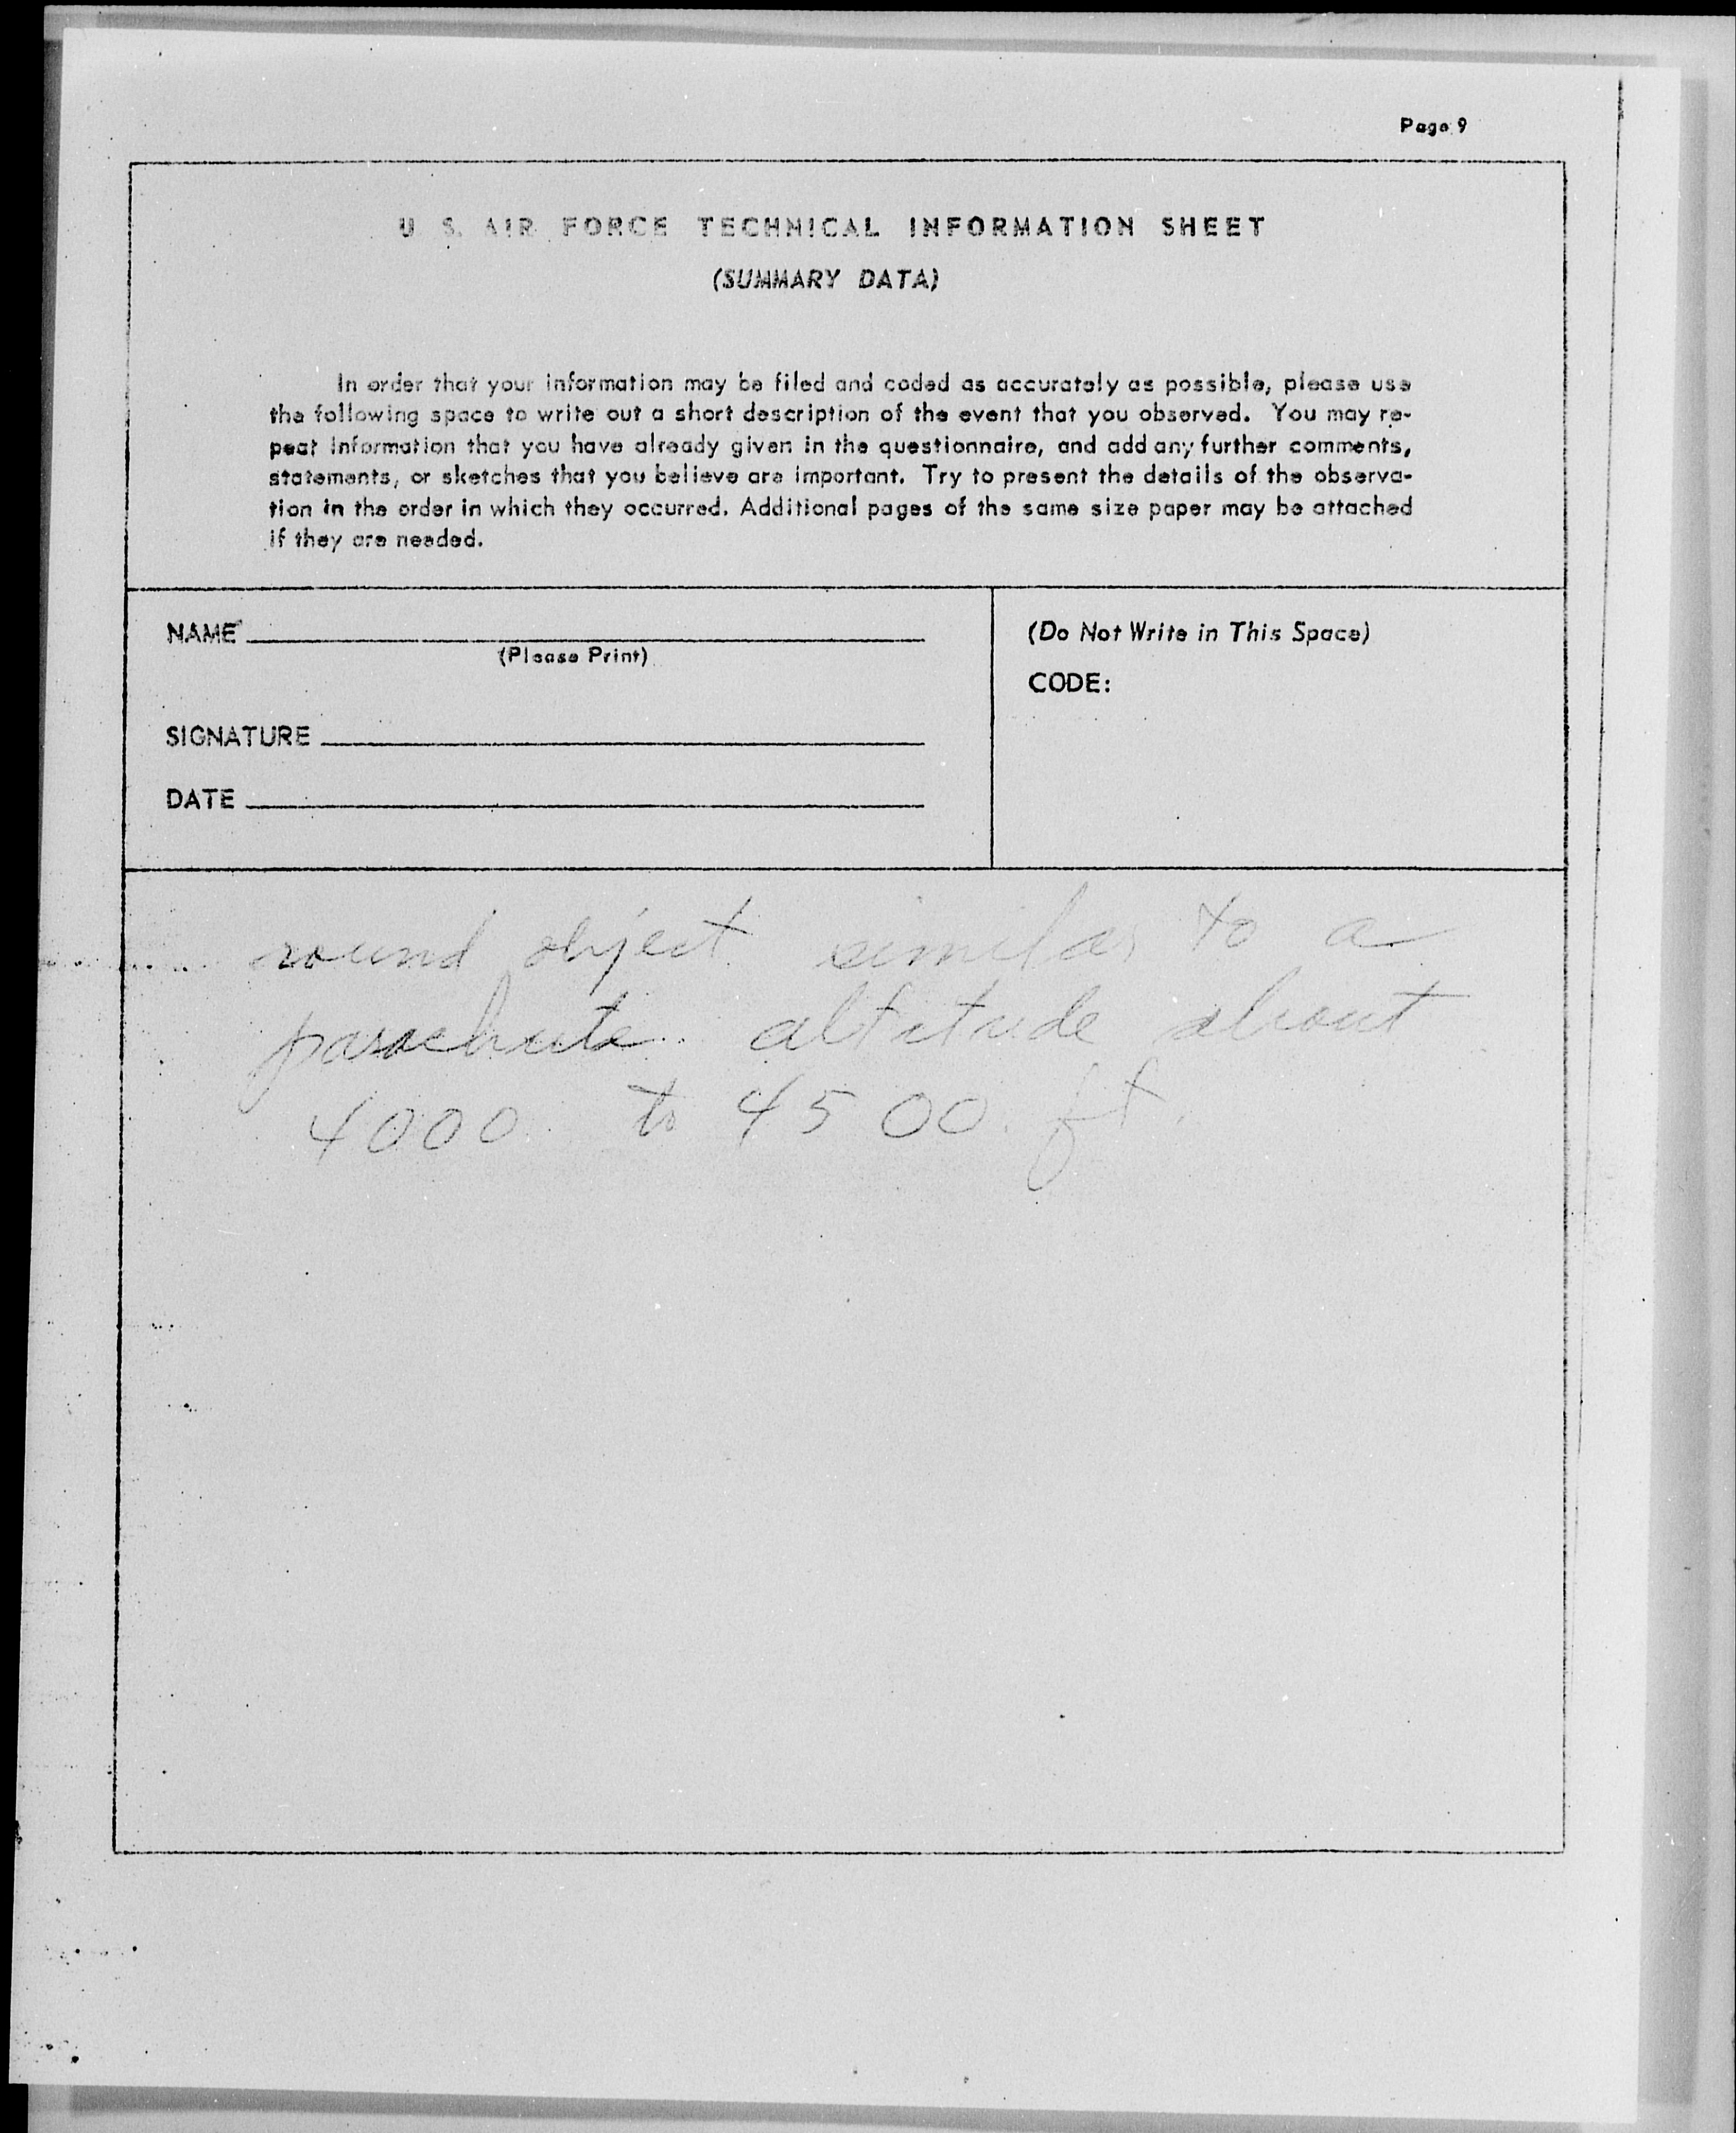 Page 9
U S. AIR FORCE TECHNICAL INFORMATION SHEET
(SUMMARY DATA)
In order that your information may be filed and coded as accurately as possible, please use
the following space to write out a short description of the event that you observed. You may re-
peat information that you have already given in the questionnaire, and add any further comments,
statements, or sketches that you believe are important. Try to present the details of the observa-
tion in the order in which they occurred. Additional pages of the same size paper may be attached
if they are needed.
NAME
(Please Print)
SIGNATURE
DATE
(Do Not Write in This Space)
CODE:
round object similar to a
parachute altitude about
4000 to 4500 ft.